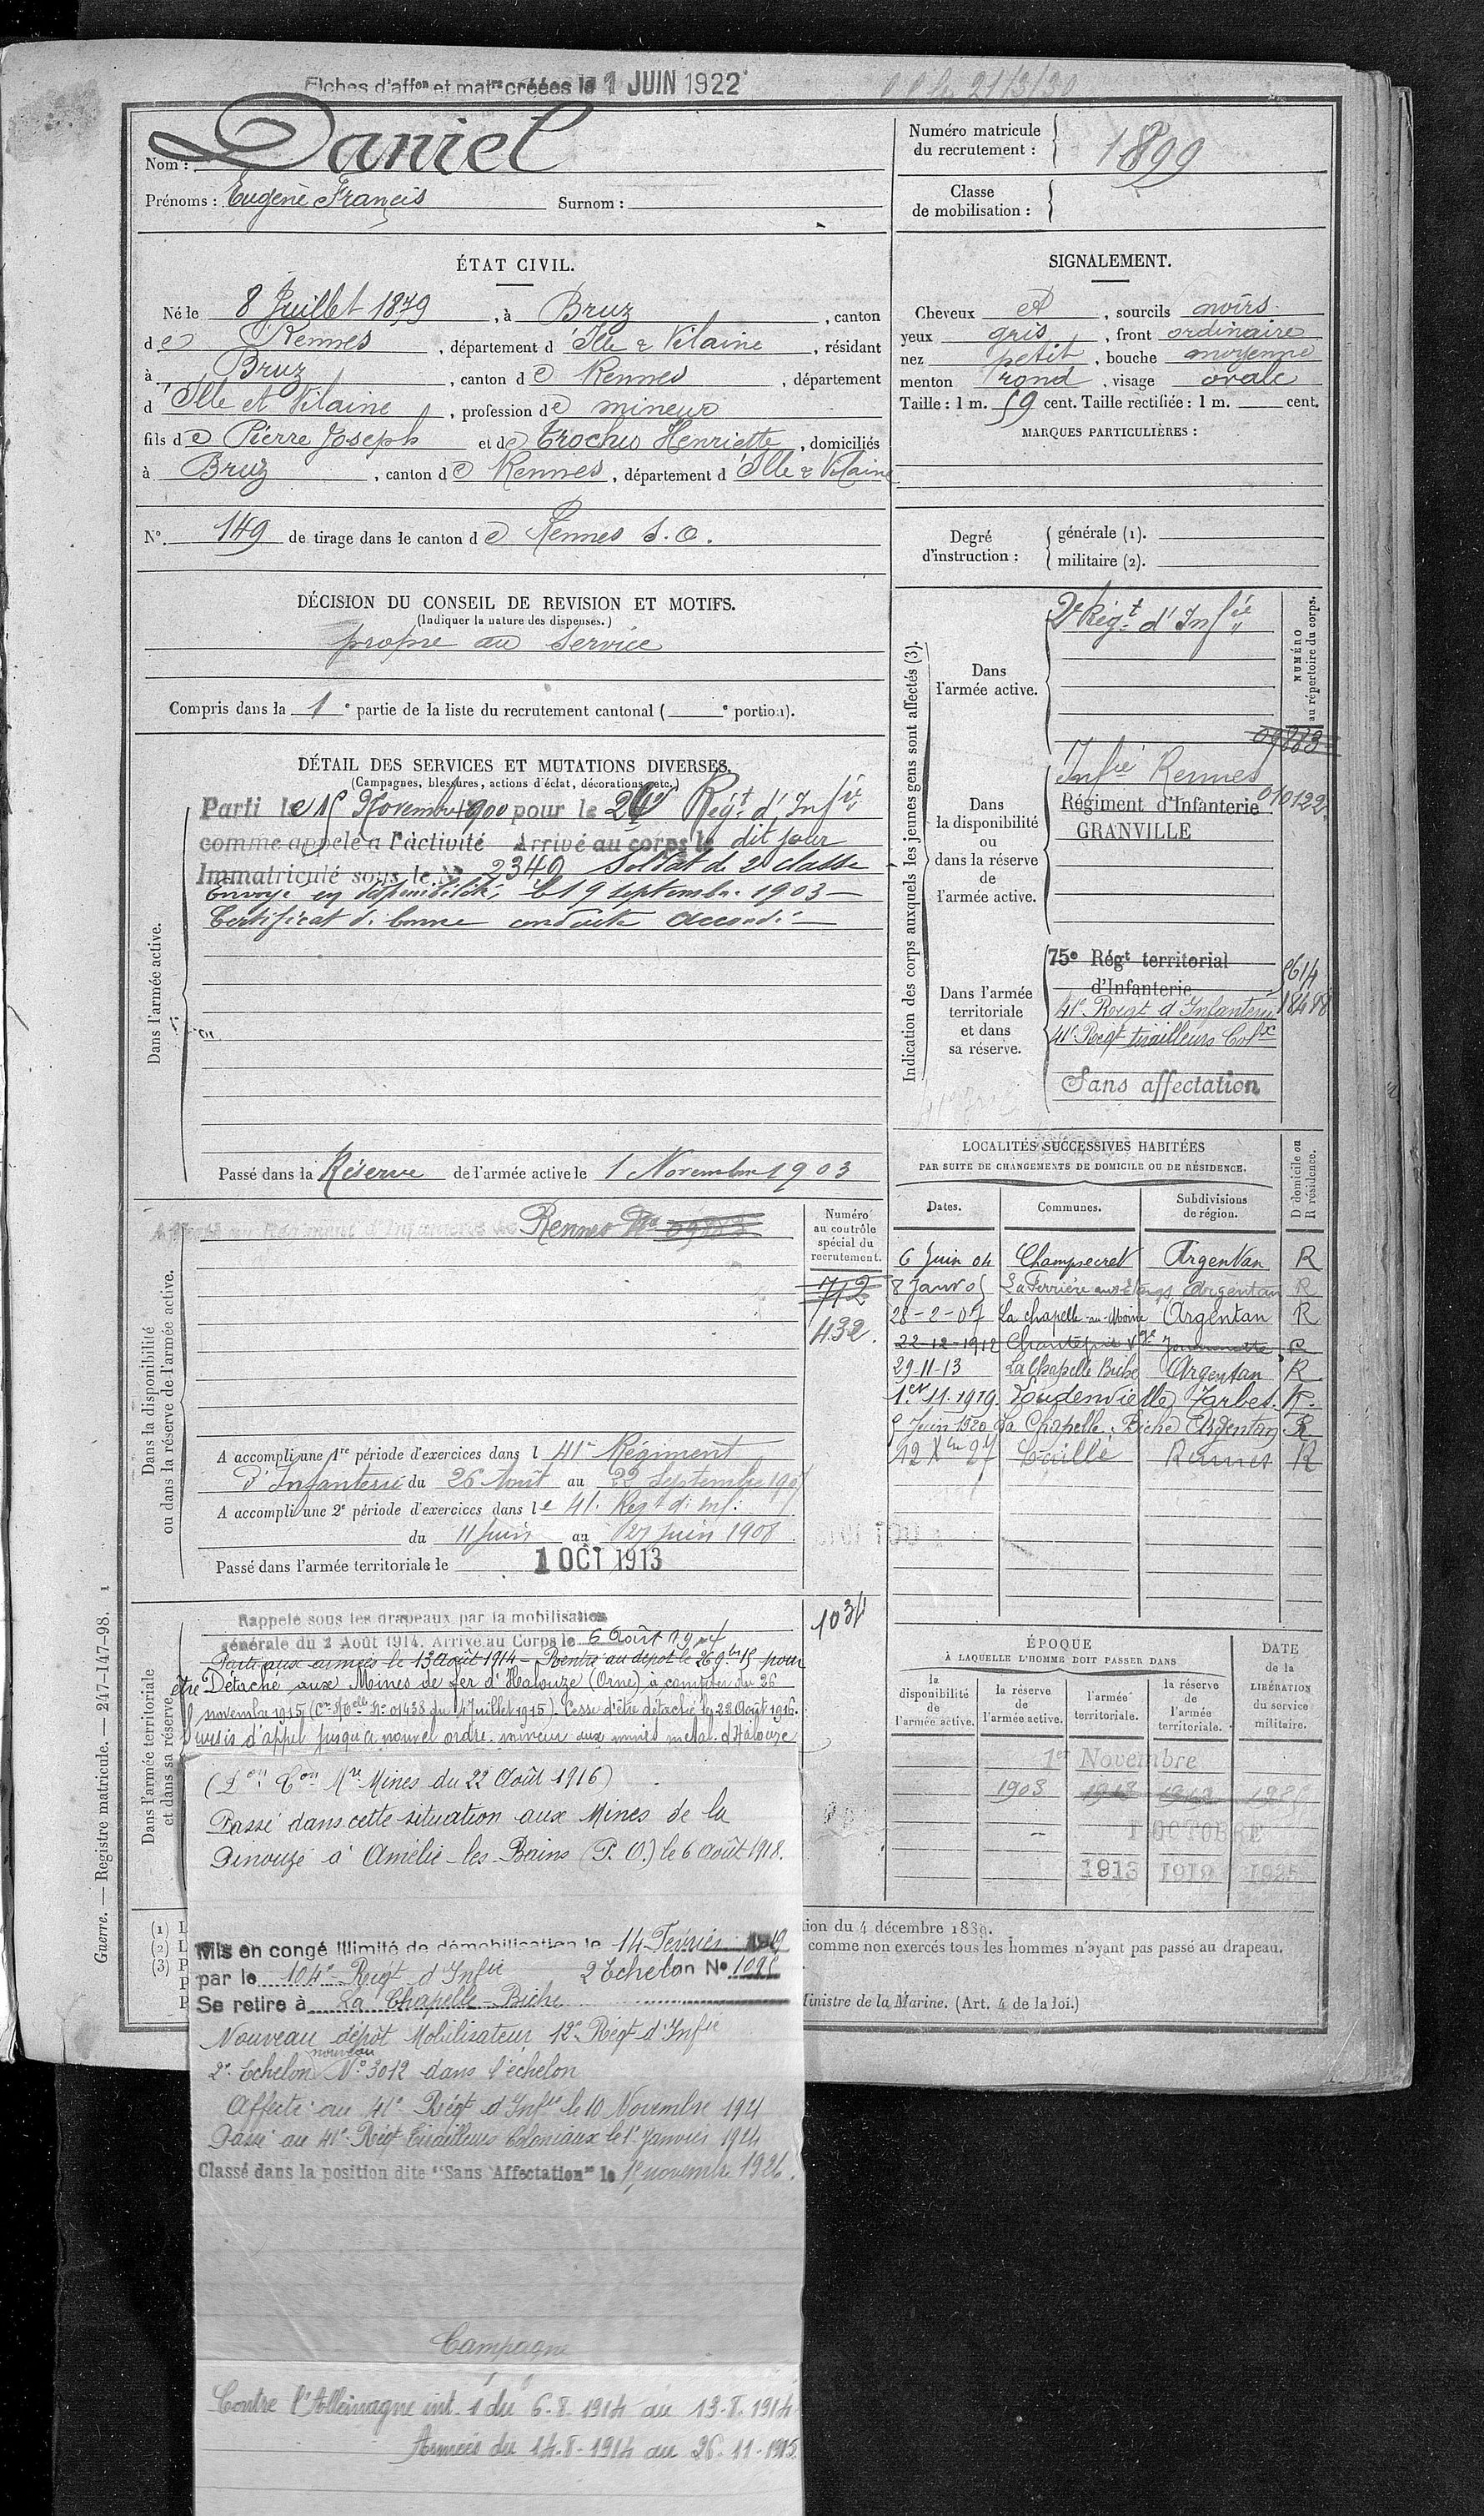 Fiches d'affon et matre créées le 1 JUIN 1922
21/3/30
Nom : Daniel
Prénoms : Eugène Francis Surnom :
Numéro matricule du recrutement : 1899
Classe de mobilisation :
ÉTAT CIVIL.
Né le 8 Juillet 1879, à Bruz, canton
de Rennes, département d'Ille & Vilaine, résidant
à Bruz, canton de Rennes, département
d'Ille et Vilaine, profession de mineur
fils de Pierre Joseph et de Trochu Henriette, domiciliés
à Bruz, canton de Rennes, département d'Ille & Vilaine
N° 149 de tirage dans le canton de Rennes S.O.
SIGNALEMENT.
Cheveux et, sourcils noirs
yeux gris, front ordinaire
nez petit, bouche moyenne
menton rond, visage ovale
Taille : 1 m. 59 cent. Taille rectifiée : 1 m. cent.
MARQUES PARTICULIÈRES :
Degré d'instruction : générale (1).
militaire (2).
DÉCISION DU CONSEIL DE REVISION ET MOTIFS.
(Indiquer la nature des dispenses.)
propre au service
Compris dans la 1e partie de la liste du recrutement cantonal ( e portion).
DÉTAIL DES SERVICES ET MUTATIONS DIVERSES.
(Campagnes, blessures, actions d'éclat, décorations, etc.)
Dans l'armée active.
Parti le 15 Novembre 1900 pour le 2e Régt d'Infie
comme appelé à l'activité Arrivé au corps le dit jour
Immatriculé sous le No 2340 Soldat de 2e classe
Envoyé en disponibilité, le 19 septembre 1903
Certificat de bonne conduite accordé
Passé dans la Réserve de l'armée active le 1 Novembre 1903
Indication des corps auxquels les jeunes gens sont affectés (3).
NUMÉRO au répertoire du corps.
Dans l'armée active.
2e Régt d'Infie
09883
Dans la disponibilité ou dans la réserve de l'armée active.
Infie Rennes
Régiment d'Infanterie 010122
GRANVILLE
Dans l'armée territoriale et dans sa réserve.
75e Régt territorial
d'Infanterie
5614
41e Régt d'Infanterie 18498
41e Régt tirailleurs Colx
Sans affectation
Dans la disponibilité ou dans la réserve de l'armée active.
Régiment d'Infanterie de Rennes No 09883
Numéro au contrôle spécial du recrutement.
712
432.
A accompli une 1re période d'exercices dans l 41e Régiment
d'Infanterie du 26 Août au 22 Septembre 1907
A accompli une 2e période d'exercices dans le 41e Regt d'Inf.
du 11 Juin au 27 Juin 1908
Passé dans l'armée territoriale le 1 OCT 1913
LOCALITÉS SUCCESSIVES HABITÉES
PAR SUITE DE CHANGEMENTS DE DOMICILE OU DE RÉSIDENCE.
Dates. Communes. Subdivisions de région. D domicile ou R résidence.
6 Juin 04 Champsecret Argentan R
8 Janv 05 La Ferrière aux Etangs Argentan R
28-2-07 La chapelle-au-Moine Argentan R
22-12-1912 Chantepie R
29-11-13 La Chapelle Biche Argentan R
1er 11. 1919. Loudenvielle Tarbes. R.
5 Juin 1920 La Chapelle Biche Argentan R
12 Xbre 27 Rennes R
Dans l'armée territoriale et dans sa réserve.
1034
Rappelé sous les drapeaux par la mobilisation
générale du 2 Août 1914. Arrivé au Corps le 6 Août 1914
Parti aux armées le 13 Août 1914 - Rentré au dépôt le 26 9bre 15 pour
être Détaché aux Mines de fer d'Halouze (Orne) à compter du 26
novembre 1915 (Cre Mlle No 01438 du 4 Juillet 1915). Cesse d'être détaché le 22 Août 1916.
Sursis d'appel jusqu'à nouvel ordre, mineur aux mines métal. d'Halouze
(Don Con Mre Mines du 22 Août 1916)
Passé dans cette situation aux Mines de la
Pinouze à Amélie-les-Bains (P.O.) le 6 Août 1918.
Mis en congé illimité de démobilisation le 14 Fevrier 1919
par le 104e Régt d'Infie 2 Echelon No 1095
Se retire à La Chapelle-Biche
Nouveau dépôt Mobilisateur 12e Régt d'Infie
2e Echelon nouveau No 3012 dans l'échelon
Affecté au 41e Régt d'Infie le 10 Novembre 1921
Passé au 41e Régt Tirailleurs Coloniaux le 1er Janvier 1924
Classé dans la position dite "Sans Affectation" le 15 novembre 1926.
Campagne
Contre l'Allemagne int. 1 du 6-8-1914 au 13-8-1914
Armées du 14-8-1914 au 26-11-1915
ÉPOQUE
À LAQUELLE L'HOMME DOIT PASSER DANS
la disponibilité de l'armée active. la réserve de l'armée active. l'armée territoriale. la réserve de l'armée territoriale.
DATE de la LIBÉRATION du service militaire.
1er Novembre
1903
1 OCTOBRE
1913 1919 1925
tion du 4 décembre 1889.
comme non exercés tous les hommes n'ayant pas passé au drapeau.
Ministre de la Marine. (Art. 4 de la loi.)
(1) L
(2) L
(3) P
P
P
Guerre. — Registre matricule. — 247-147-98. 1